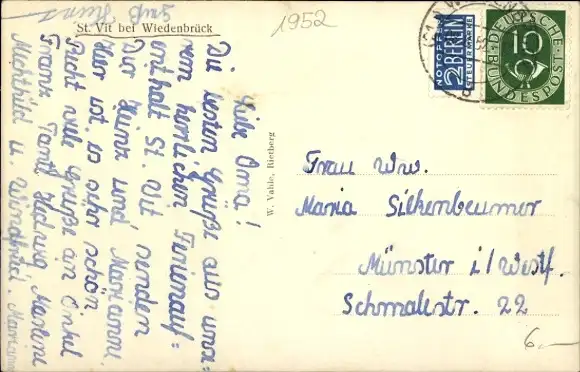 1952
Gruß
Heinz
St. Vit bei Wiedenbrück
Liebe Oma!
Die besten Grüße aus unse=
rem herrlichen Ferienauf=
enthalt St. Vit senden
Dir Heinz und Marianne.
Hier ist es sehr schön
Recht viele Grüße an Onkel
Franz Tante Hedwig Marlene
Mechthild u. Winfried. Marianne
W. Vahle, Rietberg
NOTOPFER
2 BERLIN
STEUERMARKE
DEUTSCHE
BUNDESPOST
10
Frau Ww.
Maria Silkenbeumer
Münster i/Westf.
Schmalestr. 22
6,—